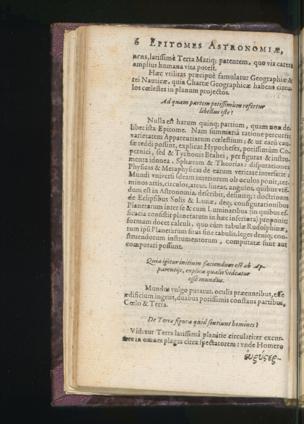 6 EPITOMES ASTRONOMIÆ,
nens, latissimè Terra Mariq; patentem, quo vix carere
amplius humana vita potest.
Hæc vtilitas præcipuè famulatur Geographiæ &
rei Nauticæ, quia Chartæ Geographicæ habent circu-
los cœlestes in planum projectos.
Ad quam partem potissimùm refertur
libellus iste?
Nulla est harum quinq; partium, quam non de-
libet ista Epitome. Nam summatim ratione percurrit
varietatem Apparentiarum cœlestium: & ut earū cau-
sæ reddi possint, explicat Hypotheses, potissimùm Co-
pernici, sed & Tychonis Brahei, per figuras & instru-
menta idonea, Sphæram & Theorias: disputationes
Physicas & Metaphysicas de earum veritate interserit:
Mundi universi ideam interiorem ob oculos ponit, ter-
minos, circulos, arcus, lineas, angulos, quibus vtē-
dum est in Astronomia, describit, definit: doctrinam
de Eclipsibus Solis & Lunæ, deq; configurationibus
Planetarum inter se & cum Luminaribus
formam docet calculi, quo cùm tabulæ Rudolphinæ,
computari possunt.
Quia igitur initium faciendum est ab Ap-
parentijs, explica qualis videatur
esse mundus.
Mundus vulgò putatur, oculis præeuntibus, esse
ædificium ingens, duabus potissimis constans partibus,
Cœlo & Terra.
De Terræ figura quid sentiunt homines?
Videtur Terra latissimâ planitie circulariter excur-
rere in omnem plagas circa spectatorem: unde Homero